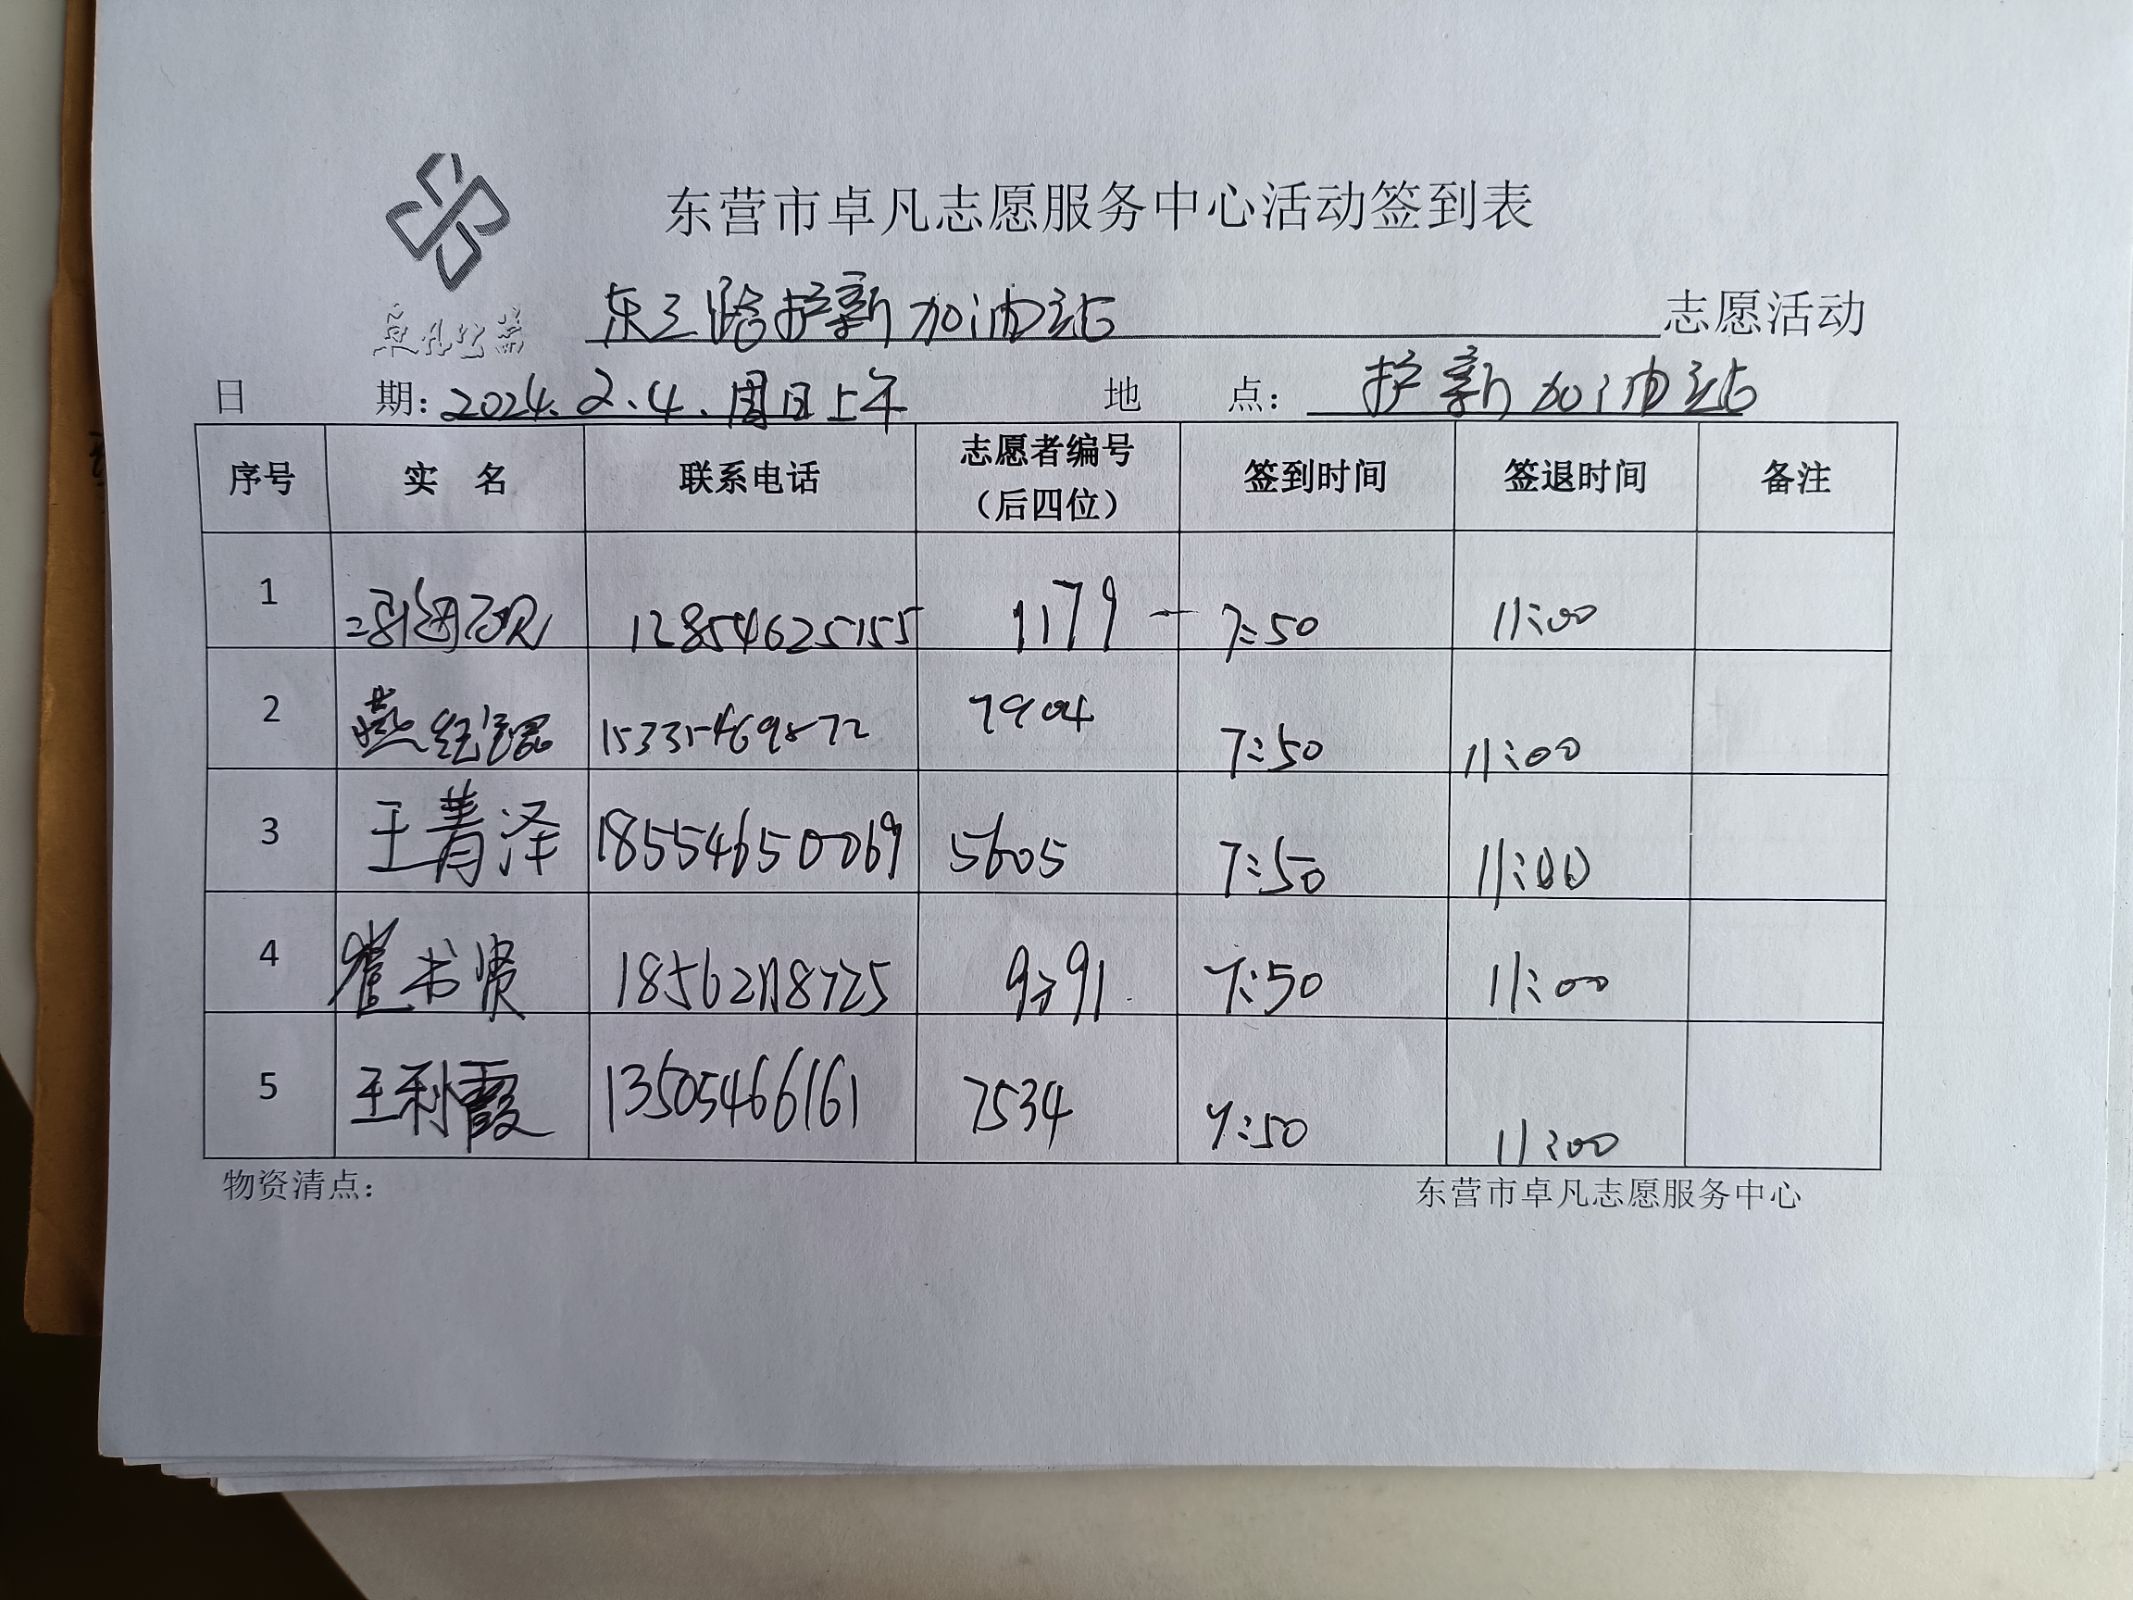 东营市卓凡志愿服务中心活动签到表
卓凡公益
东三路护新加油站 志愿活动
日 期：2024.2.4.周日上午 地 点：护新加油站
序号 实 名 联系电话 志愿者编号（后四位） 签到时间 签退时间 备注
1 12854625155 1179 7:50 11:00
2 7904 7:50 11:00
3 王菁泽 18554650069 5605 7:50 11:00
4 崔书贤 18562118725 7:50 11:00
5 王利霞 13505466161 7534 7:50 11:00
物资清点： 东营市卓凡志愿服务中心